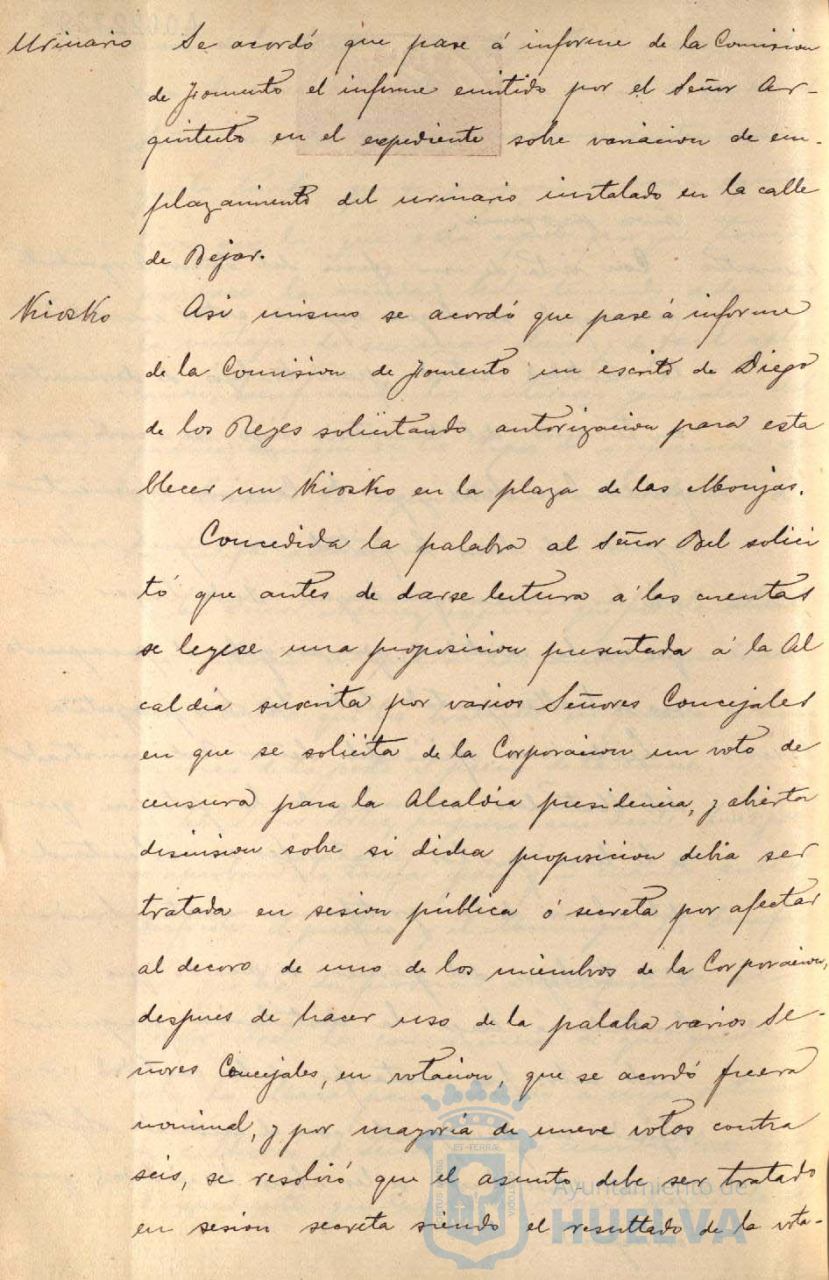 Urinario Se acordó que pase á informe de la Comision
de Fomento el informe emitido por el Señor Ar-
quitecto en el expediente sobre variacion de em-
plazamiento del urinario instalado en la calle
de Bejar.
Kiosko Asi mismo se acordó que pase á informe
de la Comision de Fomento un escrito de Diego
de los Reyes solicitando autorizacion para esta
blecer un Kiosko en la plaza de las Monjas.
Concedida la palabra al Señor Bel solici
tó que antes de darse lectura á las cuentas
se leyese una proposicion presentada á la Al
caldia suscrita por varios Señores Concejales
en que se solicita de la Corporacion un voto de
censura para la Alcaldia presidencia, y abierta
discusion sobre si dicha proposicion debia ser
tratada en sesion pública ó secreta por afectar
al decoro de uno de los miembros de la Corporacion,
despues de hacer uso de la palabra varios Se-
ñores Concejales, en votacion, que se acordó fuera
nominal, y por mayoria de nueve votos contra
seis, se resolvió que el asunto debe ser tratado
en sesion secreta siendo el resultado de la vota-
Ayuntamiento de
HUELVA